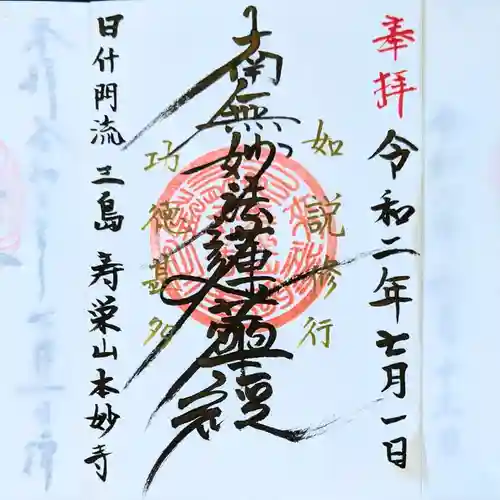 奉拝
令和二年七月一日
如説修行
南無妙法蓮華経
功徳甚多
日什門流 三島 寿栄山本妙寺